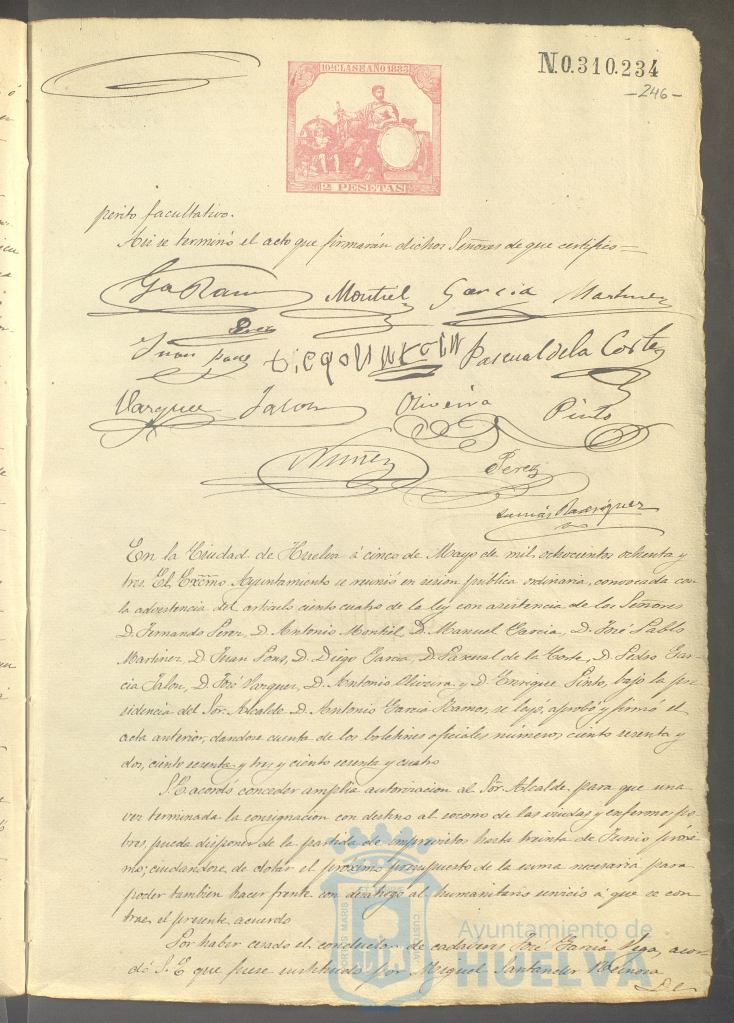 10ª CLASE AÑO 1883
2 PESETAS
N.0.310.234
-246-
perito facultativo.
Asi se terminó el acto que firmarán dichos Señores de que certifico=
Montiel Garcia Martinez
Juan Pons Diego Garcia Pascual de la Corte
Vazquez Jalon Oliveira Pinto
Nuñez Perez
Rodriguez
En la Ciudad de Huelva á cinco de Mayo de mil ochocientos ochenta y
tres. El Excmo Ayuntamiento se reunió en sesion pública ordinaria, convocada con
la advertencia del articulo ciento cuatro de la ley con asistencia de los Señores
D. Fernando Perez, D. Antonio Montiel, D. Manuel Garcia, D. José Pablo
Martinez, D. Juan Pons, D. Diego Garcia, D. Pascual de la Corte, D. Pedro Gar-
cia Jalon, D. José Vazquez, D. Antonio Oliveira y D. Enrique Pinto, bajo la pre-
sidencia del Sor. Alcalde D. Antonio Garcia Ramos, se leyó, aprobó y firmó el
acta anterior, dandose cuenta de los boletines oficiales números ciento sesenta y
dos, ciento sesenta y tres y ciento sesenta y cuatro
S. E. acordó conceder amplia autorizacion al Sor. Alcalde para que una
vez terminada la consignacion con destino al socorro de las viudas y enfermos po-
bres, pueda disponer de la partida de imprevistos hasta treinta de Junio próxi-
mo; cuidandose de dotar el próximo presupuesto de la suma necesaria para
poder tambien hacer frente con desahogo al humanitario servicio á que se con-
trae el presente acuerdo
Por haber cesado el conductor de cadaveres José Garcia Vega, acor-
dó S. E. que fuese sustituido por Miguel Santander Reinosa
De
PORTUS MARIS CUSTODIA
Ayuntamiento de
HUELVA